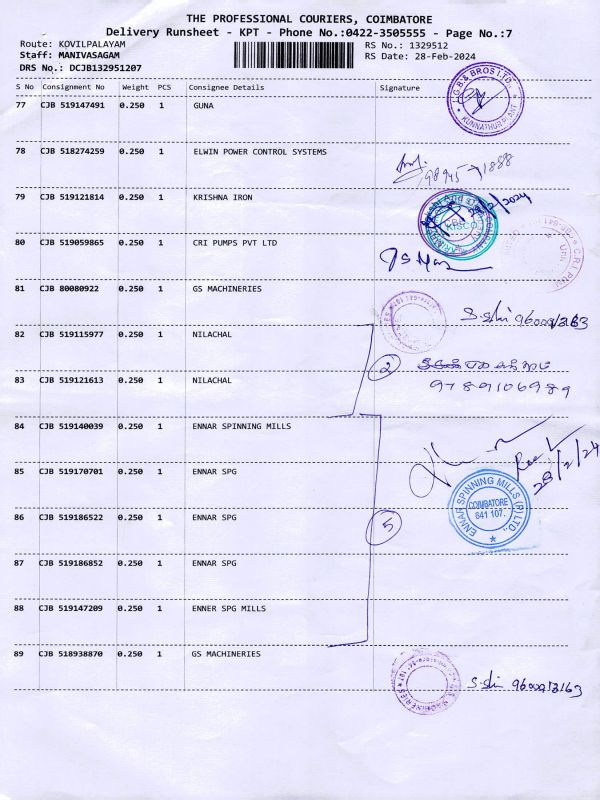 THE PROFESSIONAL COURIERS, COIMBATORE
Delivery Runsheet - KPT - Phone No.:0422-3505555 - Page No.:7
Route: KOVILPALAYAM RS No.: 1329512
Staff: MANIVASAGAM RS Date: 28-Feb-2024
DRS No.: DCJB132951207
S No Consignment No Weight PCS Consignee Details Signature
77 CJB 519147491 0.250 1 GUNA
G.B.S BROS LTD.,
KUNNATHUR PLANT
78 CJB 518274259 0.250 1 ELWIN POWER CONTROL SYSTEMS
79 CJB 519121814 0.250 1 KRISHNA IRON
28/2/2024
80 CJB 519059865 0.250 1 CRI PUMPS PVT LTD
81 CJB 80080922 0.250 1 GS MACHINERIES
82 CJB 519115977 0.250 1 NILACHAL
2
83 CJB 519121613 0.250 1 NILACHAL
9789106989
84 CJB 519140039 0.250 1 ENNAR SPINNING MILLS
28/2/24
85 CJB 519170701 0.250 1 ENNAR SPG
ENNAR SPINNING MILLS (P) LTD.,
COIMBATORE
641 107.
86 CJB 519186522 0.250 1 ENNAR SPG
5
87 CJB 519186852 0.250 1 ENNAR SPG
88 CJB 519147209 0.250 1 ENNER SPG MILLS
89 CJB 518938870 0.250 1 GS MACHINERIES